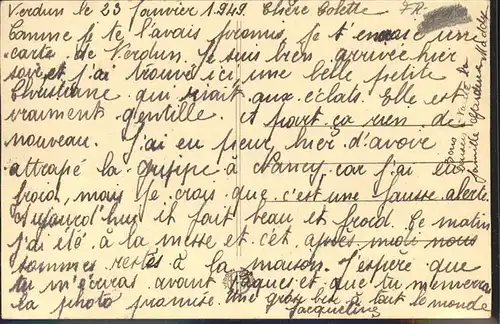 Verdun le 23 Janvier 1949. Chère Colette
Comme je te l'avais promis, je t'envoie une
carte de Verdun. Je suis bien arrivée hier
soir et j'ai trouvé ici une belle petite
Christiane qui riait aux éclats. Elle est
vraiment gentille. et part ça rien de
nouveau. J'ai eu peur, hier d'avoir
attrapé la grippe à Nancy car j'ai eu
froid, mais je crois que c'est une fausse alerte.
Aujourd'hui it fait beau et froid. Ce matin
j'ai été à la messe et cet après midi nous
sommes restés à la maison. J'espère que
tu m'écriras avant Paques et que tu m'enverras
la photo promise. Une grosse bise à tout le monde
Jacqueline
toute la
famille